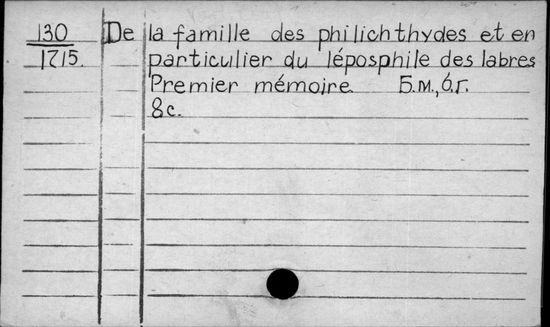 130 De la famille des philichthydes et en
1715. particulier du léposphile des labres
Premier mémoire Б.м., б.г.
8c.